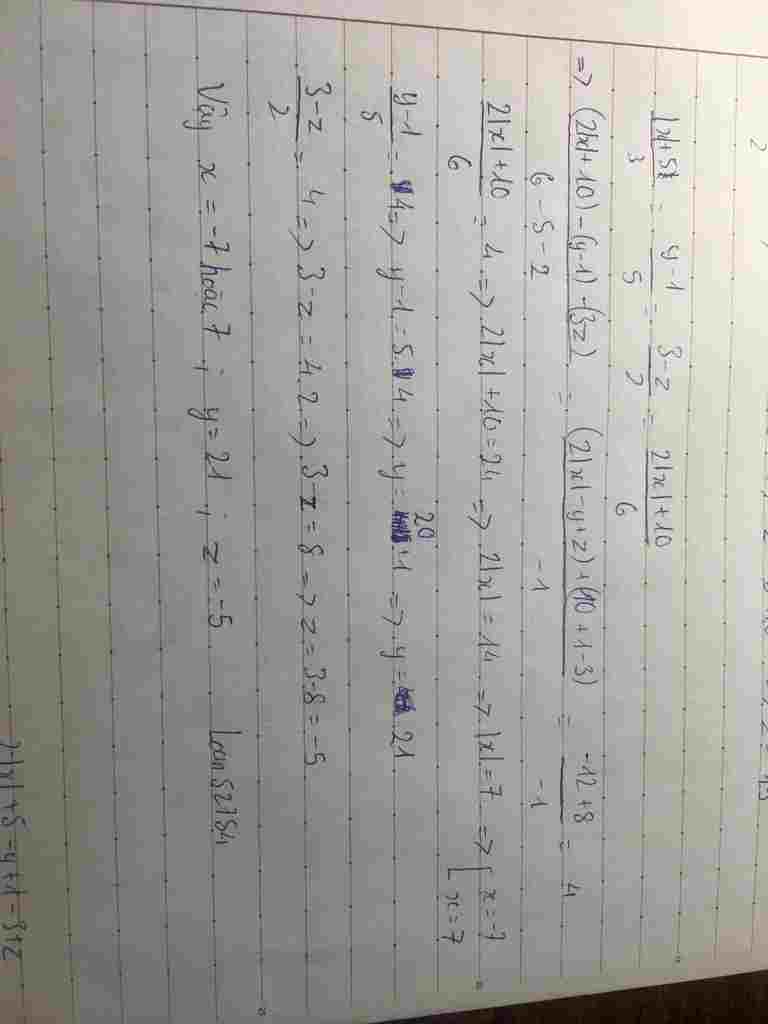 |x|+5/3 = y-1/5 = 3-z/2 = 2|x|+10/6
=> (2|x|+10)-(y-1)-(3z)/6-5-2 = (2|x|-y+z)+(10+1-3)/-1 = -12+8/-1 = 4
2|x|+10/6 = 4 => 2|x|+10=24 => 2|x|=14 => |x|=7 => [x=-7 x=7
y-1/5 = 4 => y-1=5.4 => y=20+1 => y=21
3-z/2 = 4 => 3-z=4.2 => 3-z=8 => z=3-8=-5
Vậy x=-7 hoặc 7; y=21; z=-5
loan52184